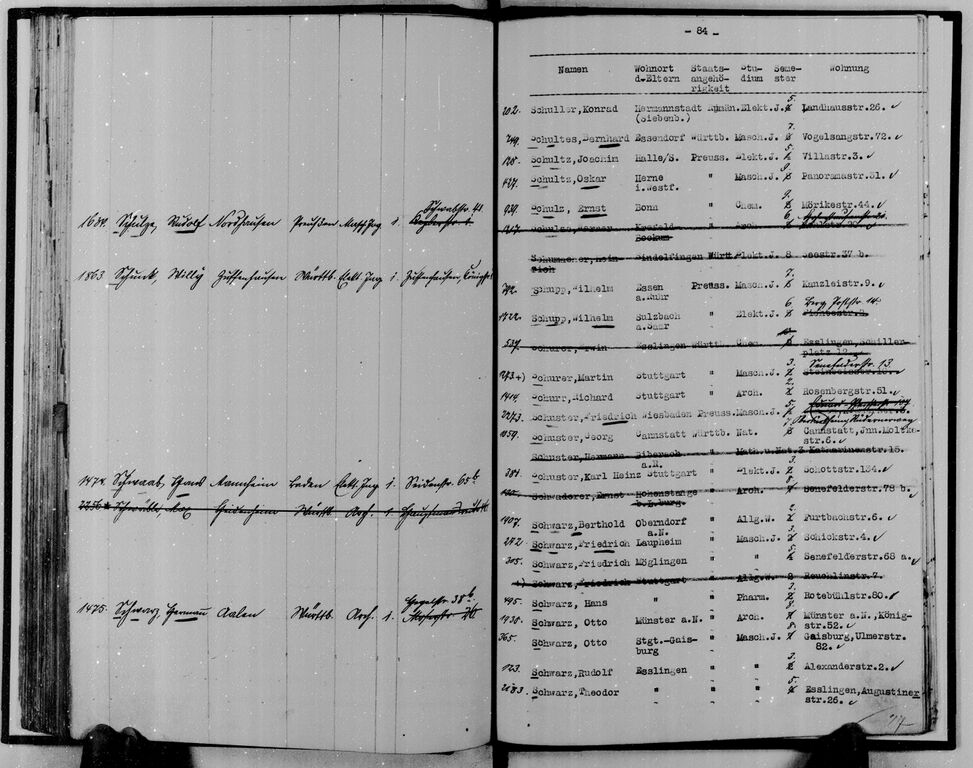 1684. Schulze, Rudolf Nordhausen Preußen Masch Ing 1. Schwabstr. 41.
1863 Schunk, Willy Zuffenhausen Württb. Elkt. Ing 1. Zuffenhausen, Königstr
1474. Schwaab, Hans Mannheim Baden Elkt. Ing 1. Seidenstr. 65 b
2256 Schwäble, Max Heidenheim Württb. Arch. 1
1475. Schwarz Hermann Aalen Württb. Arch. 1. Hegelstr. 38 b
- 84 -
Namen Wohnort d.Eltern Staatsangehörigkeit Studium Semester Wohnung
202. Schuller, Konrad Hermannstadt Rumän. Elekt.J. 5. Landhausstr.26.
(Siebenb.)
749. Schultes, Bernhard Essendorf Württb. Masch.J. 7. Vogelsangstr.72.
128. Schultz, Joachim Halle/S. Preuss. Elekt.J. 5. Villastr.3.
427. Schultz, Oskar Herne " Masch.J. 9. Panoramastr.31.
i.Westf.
939. Schulz, Ernst Bonn " Chem. 9. Mörikestr.44.
1217. Schulze, Werner Krefeld " Arch. 6.
Bockum
Schumacher, Hein- Sindelfingen Württ. Elekt.J. 8 Seestr.37 b.
rich
792. Schupp, Wilhelm Essen Preuss. Masch.J. 7. Kanzleistr.9.
a.Ruhr
1422. Schupp, Wilhelm Sulzbach " Elekt.J. 6. Berg Poststr. 14.
a.Saar Fichtestr.9.
537. Schurer, Erwin Esslingen Württb. Chem. Esslingen, Schiller-
platz 12.
273+) Schurer, Martin Stuttgart " Masch.J. 3. Senefelderstr. 13
1414. Schurr, Richard Stuttgart " Arch. 2. Rosenbergstr.51.
2273. Schuster, Friedrich Wiesbaden Preuss. Masch.J. 5.
1059. Schuster, Georg Cannstatt Württb. Nat. 7. Cannstatt, Jnn.Moltke-
str.6.
Schuster, Hermann Biberach " Math.u.Nat. 3 Katharinenstr.15.
a.R.
381. Schuster, Karl Heinz Stuttgart " Elekt.J. 3. Schottstr.134.
Schwaderer, Ernst Hohenstange " Arch. 8. Senefelderstr.78 b.
b.L.burg.
1407. Schwarz, Berthold Oberndorf " Allg.W. 2. Furtbachstr.6.
a.N.
242. Schwarz, Friedrich Laupheim " Masch.J. 3. Schickstr.4.
305. Schwarz, Friedrich Möglingen " " 5. Senefelderstr.68 a.
+) Schwarz, Friedrich Stuttgart " Allg.W. 2 Reuchlinstr.7.
495. Schwarz, Hans " " Pharm. 3. Rotebühlstr.80.
1938. Schwarz, Otto Münster a.N. " Arch. Münster a.N., König-
str.52.
365. Schwarz, Otto Stgt.-Gais- " Masch.J. 8. Gaisburg, Ulmerstr.
burg 82.
123. Schwarz, Rudolf Esslingen " " 3. Alexanderstr.2.
2083. Schwarz, Theodor " " " 5. Esslingen, Augustiner
str.26.